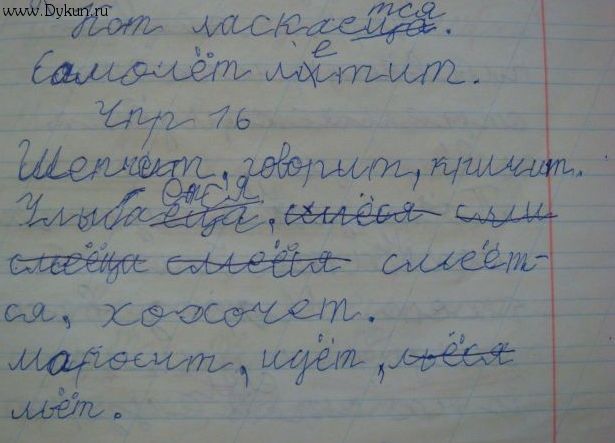 www.Dykun.ru
Кот ласкается.
Самолёт летит.
Упр 16
Шепчит, говорит, кричит.
Улыбается,
смеёт-
ся, хохочет.
маросит, идёт, льёся
льёт.